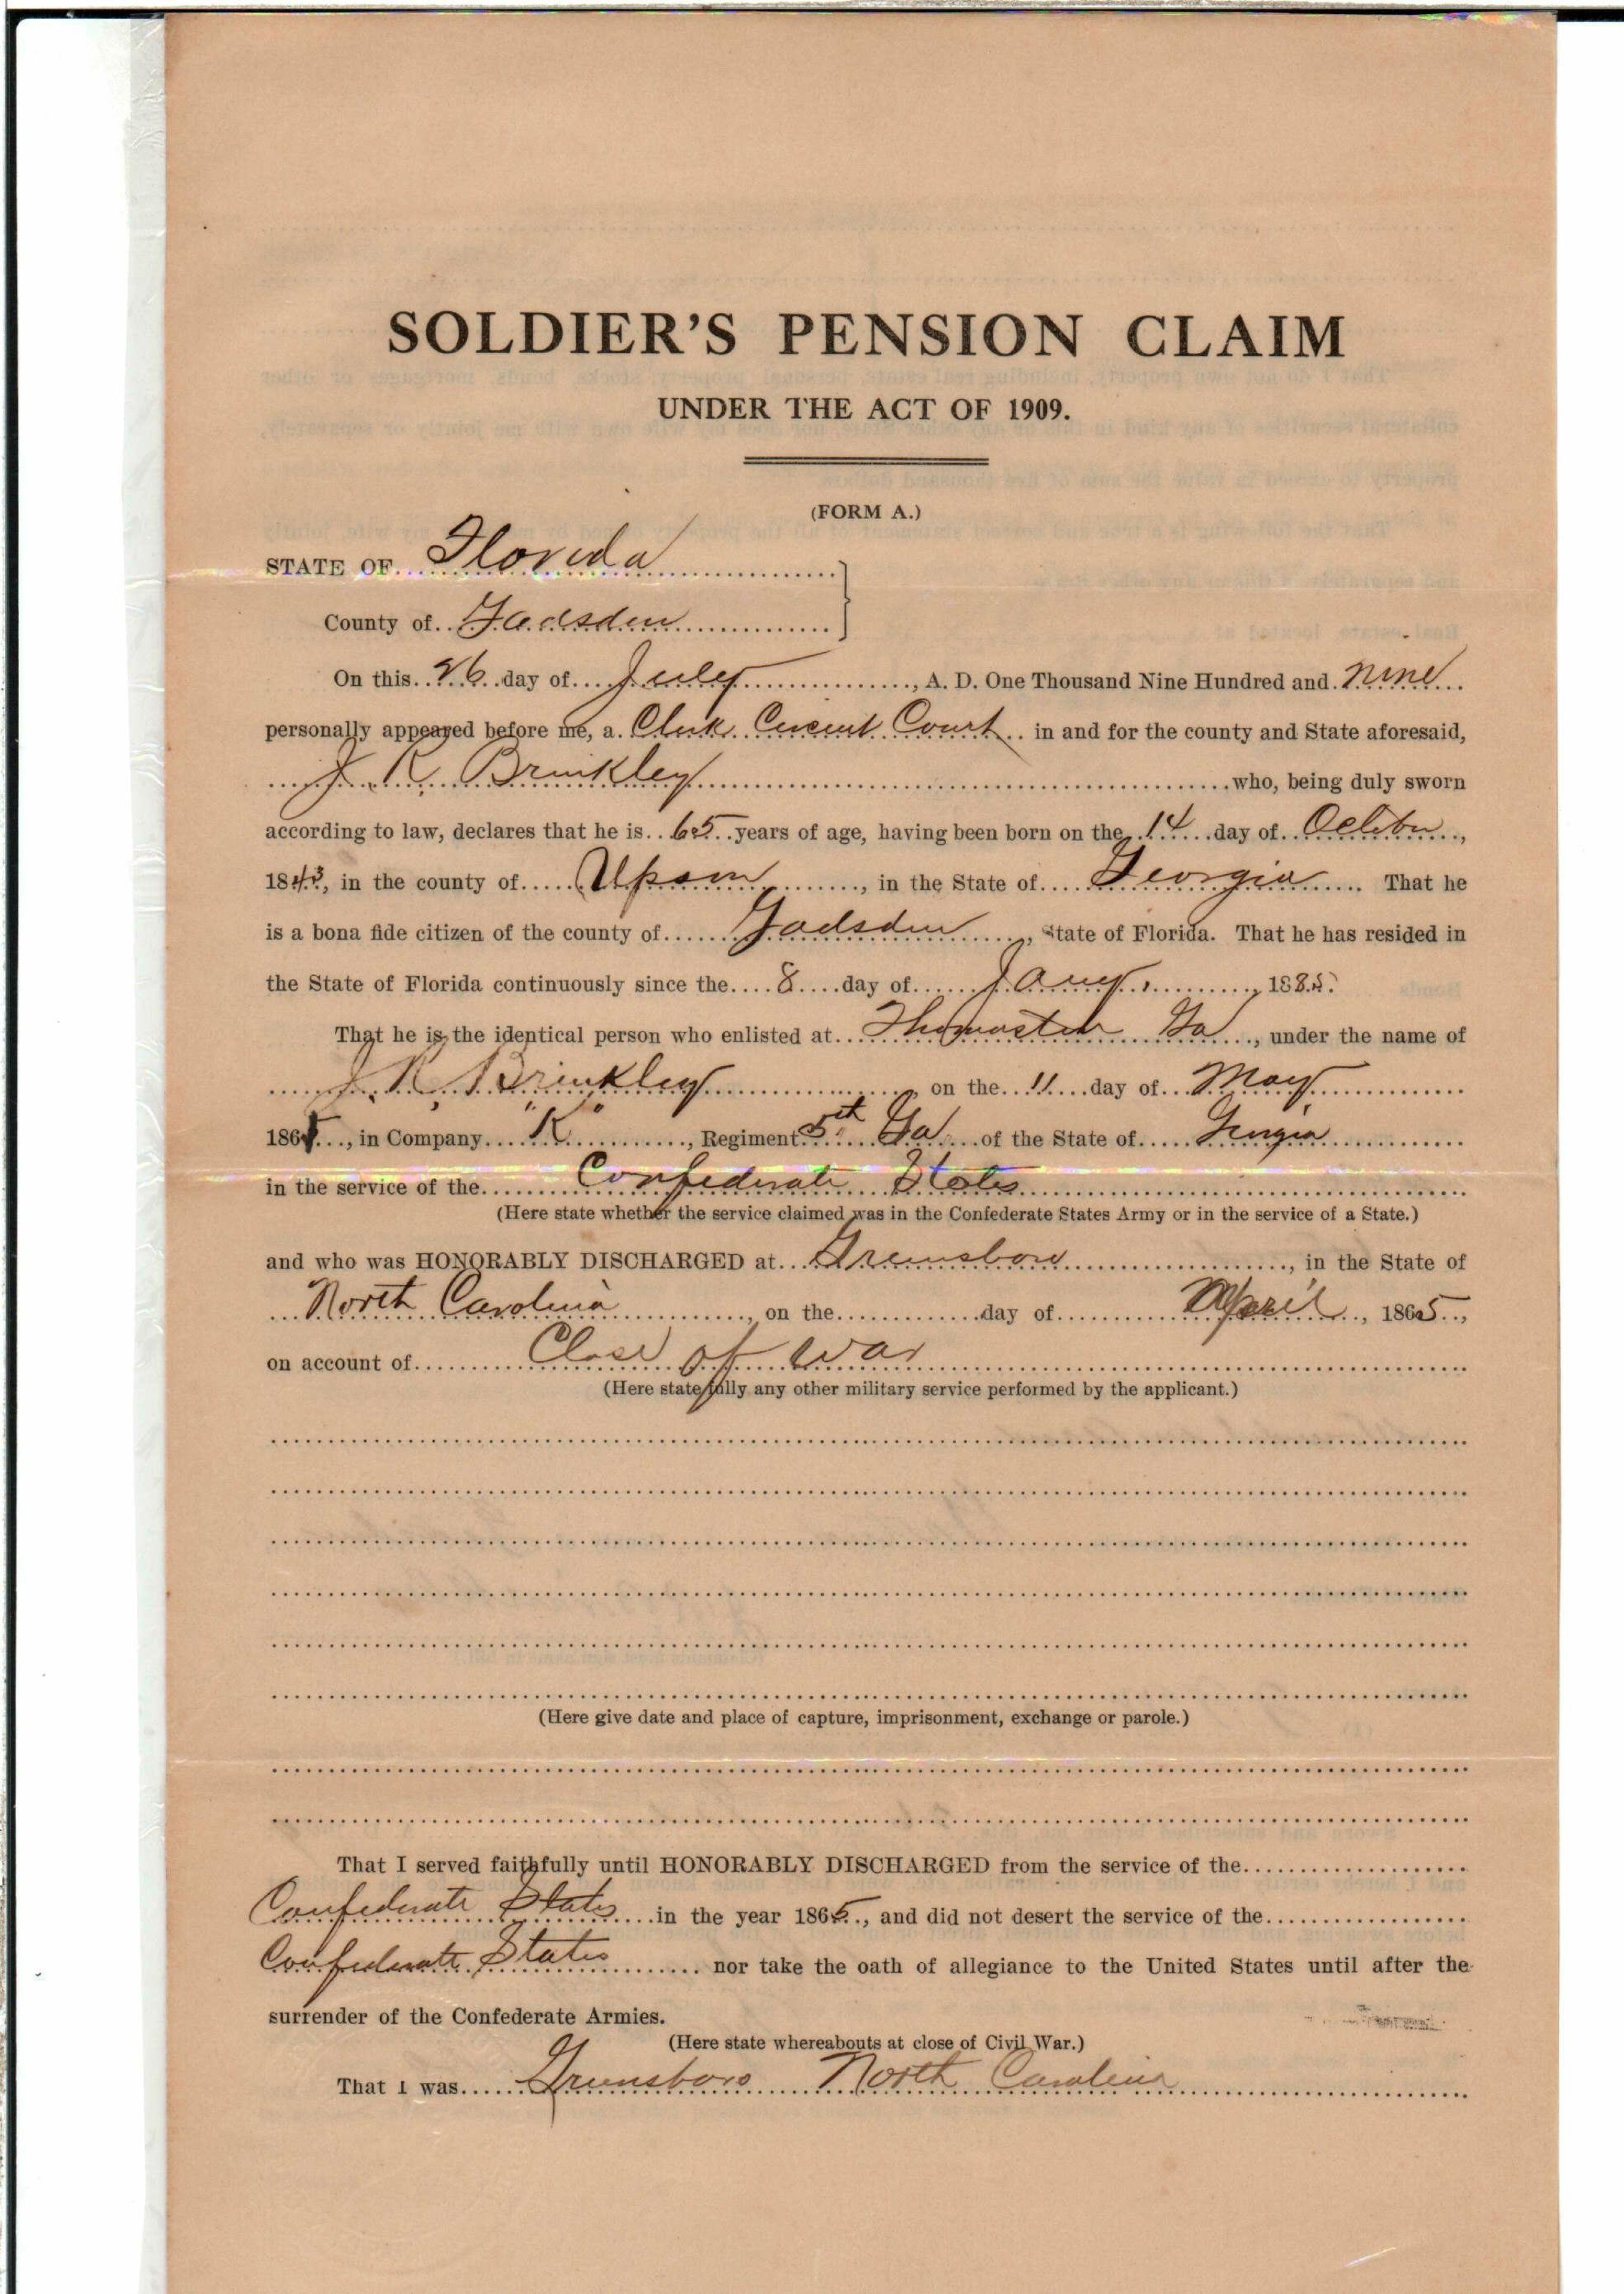 SOLDIER'S PENSION CLAIM
UNDER THE ACT OF 1909.
(FORM A.)
STATE OF Florida
County of Gadsden
On this 26 day of July, A. D. One Thousand Nine Hundred and nine
personally appeared before me, a Clerk Circuit Court in and for the county and State aforesaid,
J. R. Brinkley who, being duly sworn
according to law, declares that he is 65 years of age, having been born on the 14 day of October,
1843, in the county of Upson, in the State of Georgia. That he
is a bona fide citizen of the county of Gadsden, State of Florida. That he has resided in
the State of Florida continuously since the 8 day of Jany., 1885.
That he is the identical person who enlisted at Thomaston Ga, under the name of
J. R. Brinkley on the 11 day of May
186, in Company "K", Regiment 5th Ga. of the State of Georgia
in the service of the Confederate States
(Here state whether the service claimed was in the Confederate States Army or in the service of a State.)
and who was HONORABLY DISCHARGED at Greensboro, in the State of
North Carolina, on the day of April, 1865,
on account of Close of war
(Here state fully any other military service performed by the applicant.)
(Here give date and place of capture, imprisonment, exchange or parole.)
That I served faithfully until HONORABLY DISCHARGED from the service of the
Confederate States in the year 1865, and did not desert the service of the
Confederate States nor take the oath of allegiance to the United States until after the
surrender of the Confederate Armies.
(Here state whereabouts at close of Civil War.)
That I was Greensboro North Carolina